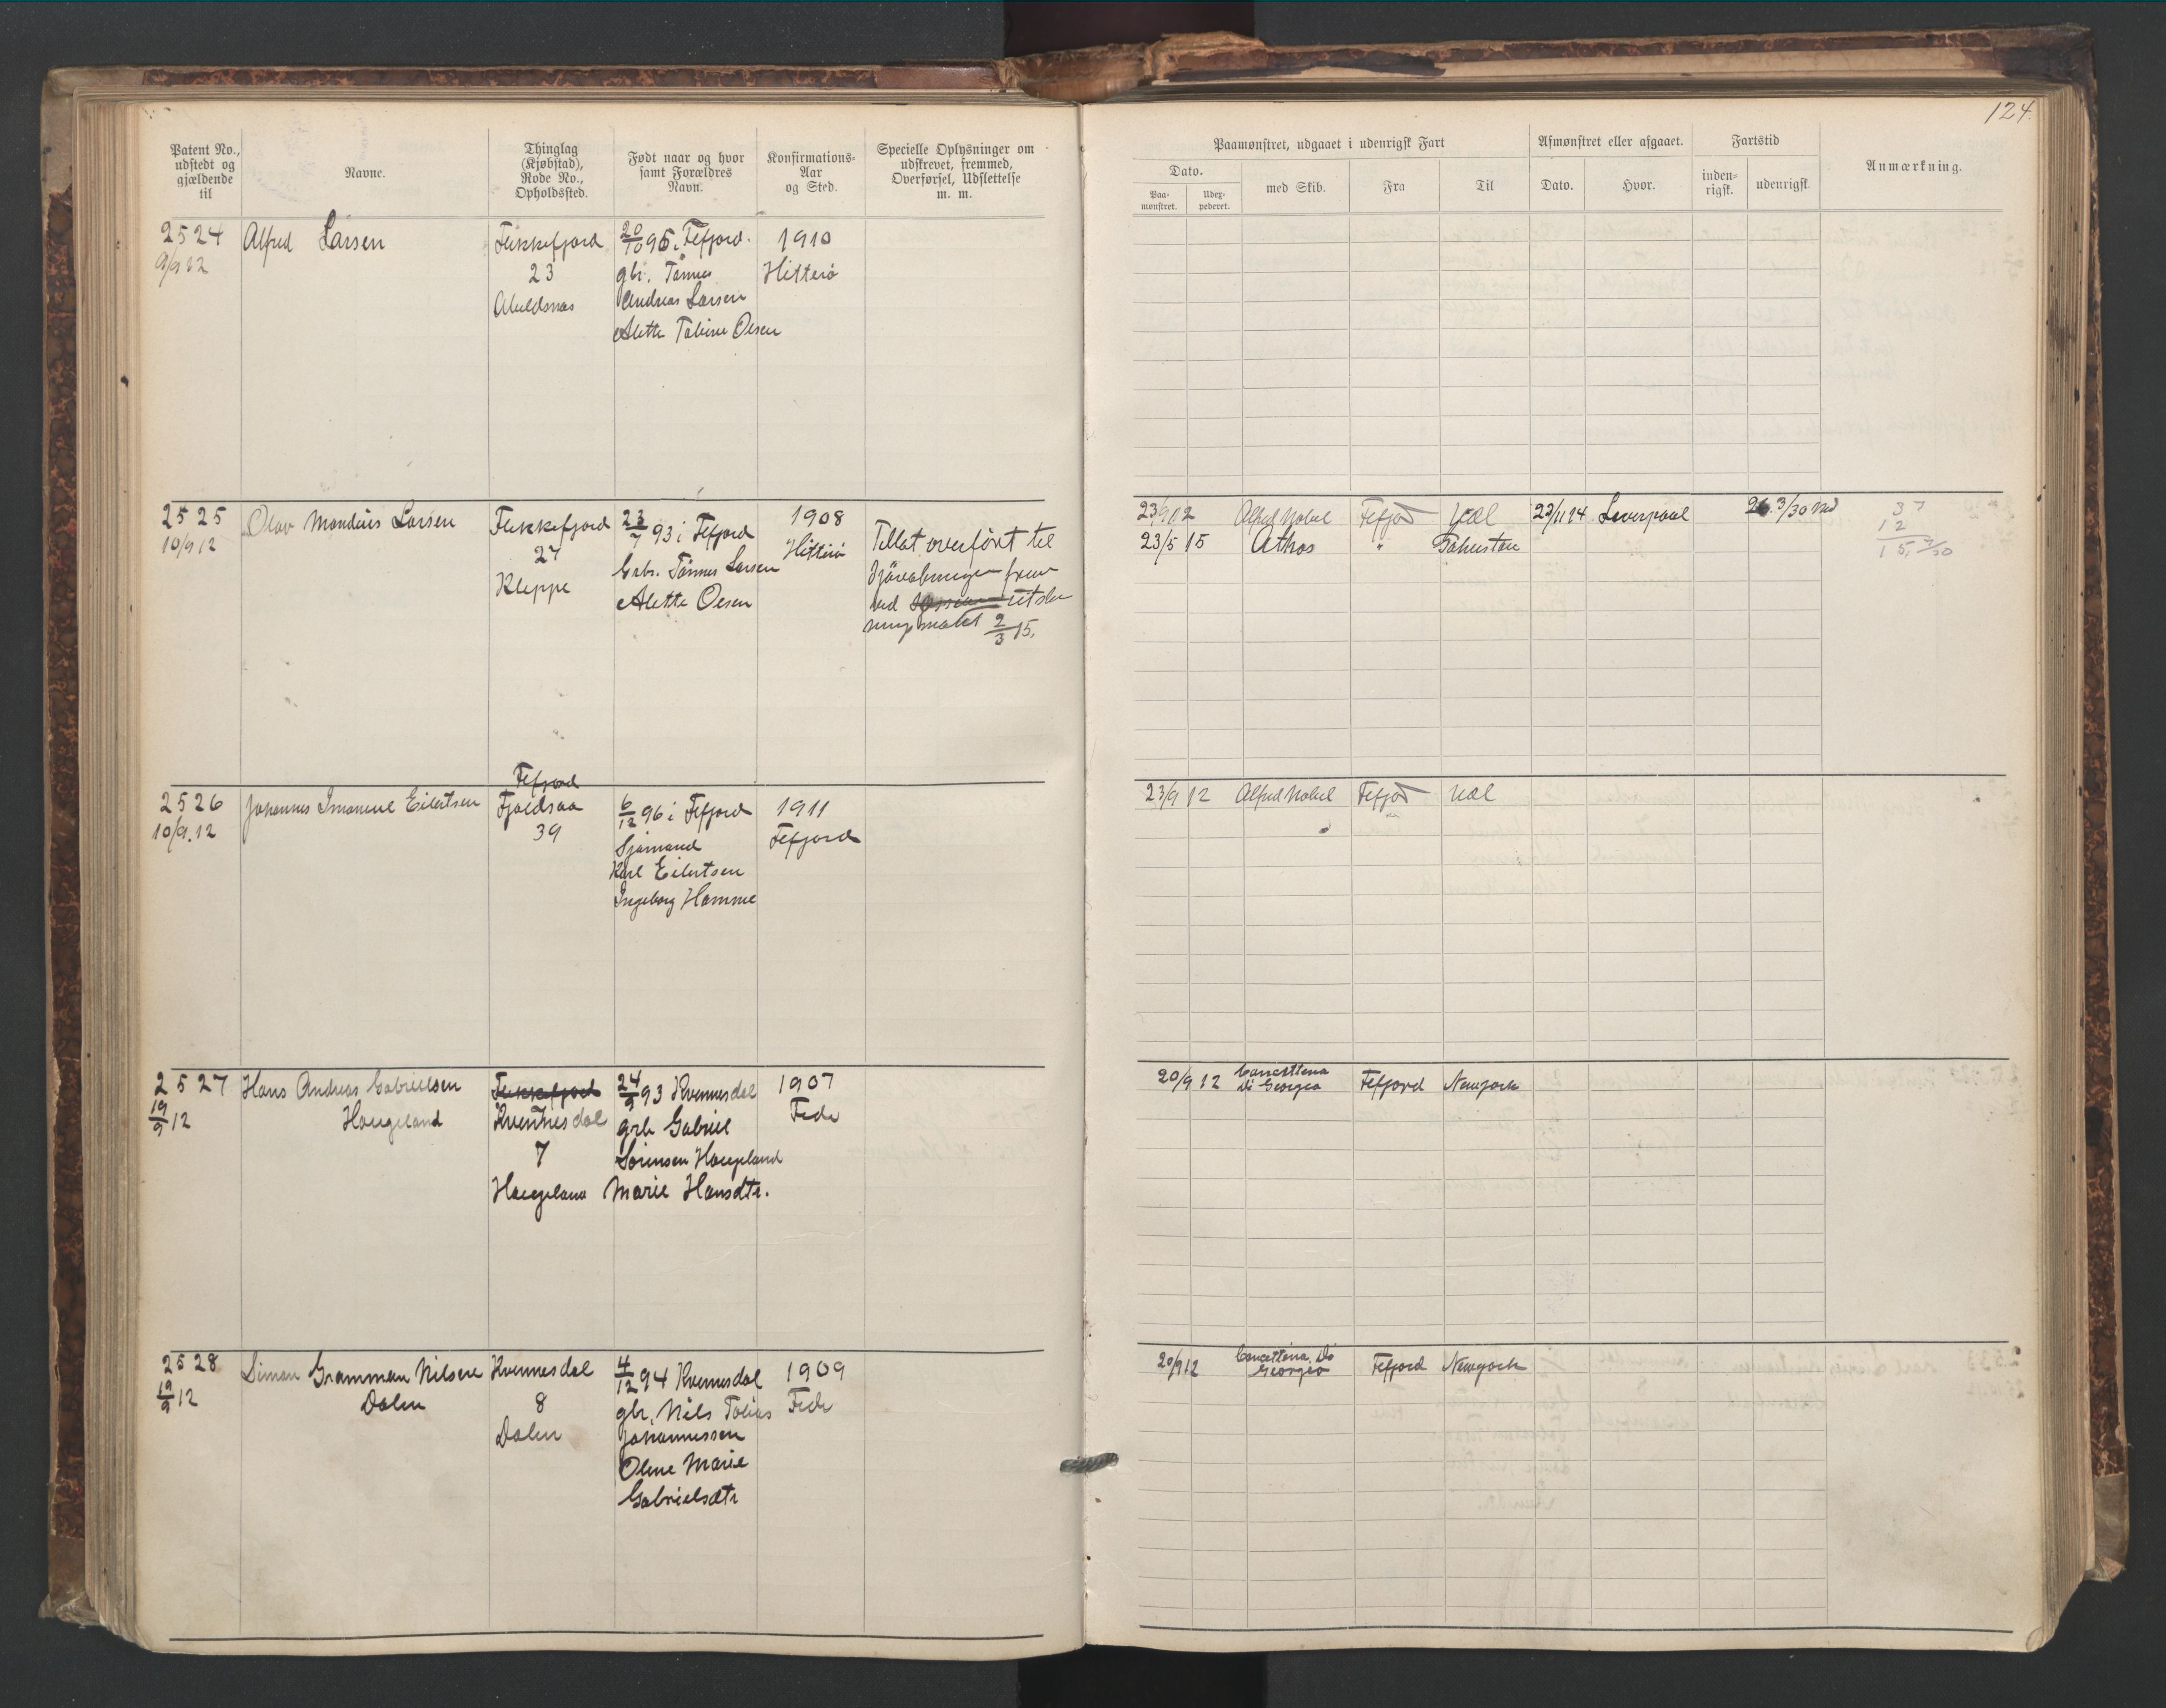 124.
Patent No., udstedt og gjældende til
Navne.
Thinglag (Kjøbstad), Rode No., Opholdssted.
Født naar og hvor samt Forældres Navn.
Konfirmations-Aar og Sted.
Specielle Oplysninger om udskrevet, fremmed, Overførsel, Udslettelse m. m.
Paamønstret, udgaaet i udenrigsk Fart
Dato.
Paa-mønstret.
Udex-pederet.
med Skib.
Fra
Til
Afmønstret eller afgaaet.
Dato.
Hvor.
Fartstid
inden-rigsk.
udenrigsk.
Anmærkning.
2524
9/9 12
Alfred Larsen
Flekkefjord
23
Abeldsnæs
20/10 95 i Fefjord.
gbr. Tønnes
Andreas Larsen
Alette Tobine Olsen
1910
Hitterø
2525
10/9 12
Olav Mandius Larsen
Flekkefjord
27
Kleppe
23/7 93 i Fefjord
Gabr. Tønnes Larsen
Alette Olsen
1908
Hitterø
Tillat overført til
Sjøværnet
ved utskr
2/3 15.
23/9 12 Alfred Nobel Fefjord 23/11 14 Liverpool 26. 3/30 Md
23/5 15 Athos "
37
12
15, 3/30
2526
10/9.12
Johannes Imanuel Eilertsen
Fefjord
Fjeldsaa
39
6/12 96 i Fefjord
Sjømand
Karl Eilertsen
Ingeborg Hamme
1911
Fefjord
23/9 12 Alfred Nobel Fefjord
2527
19/9 12
Hans Andreas Gabrielsen
Haugeland
Flekkefjord
Kvinnesdal
7
Haugeland
24/9 93 Kvinnesdal
grb Gabriel
Sørensen Haugeland
Marie Hansdtr.
1907
Fede
20/9 12 Concettina Di Georgio Fefjord Newyork
2528
19/9 12
Simon Gramman Nilsen
Dalen
Kvinnesdal
8
Dalen
4/12 94 Kvinnesdal
gbr. Nils Tobias
Johannessen
Oline Marie
Gabrielsdtr
1909
Fede
20/9 12 Concettina Di Georgio Fefjord Newyork